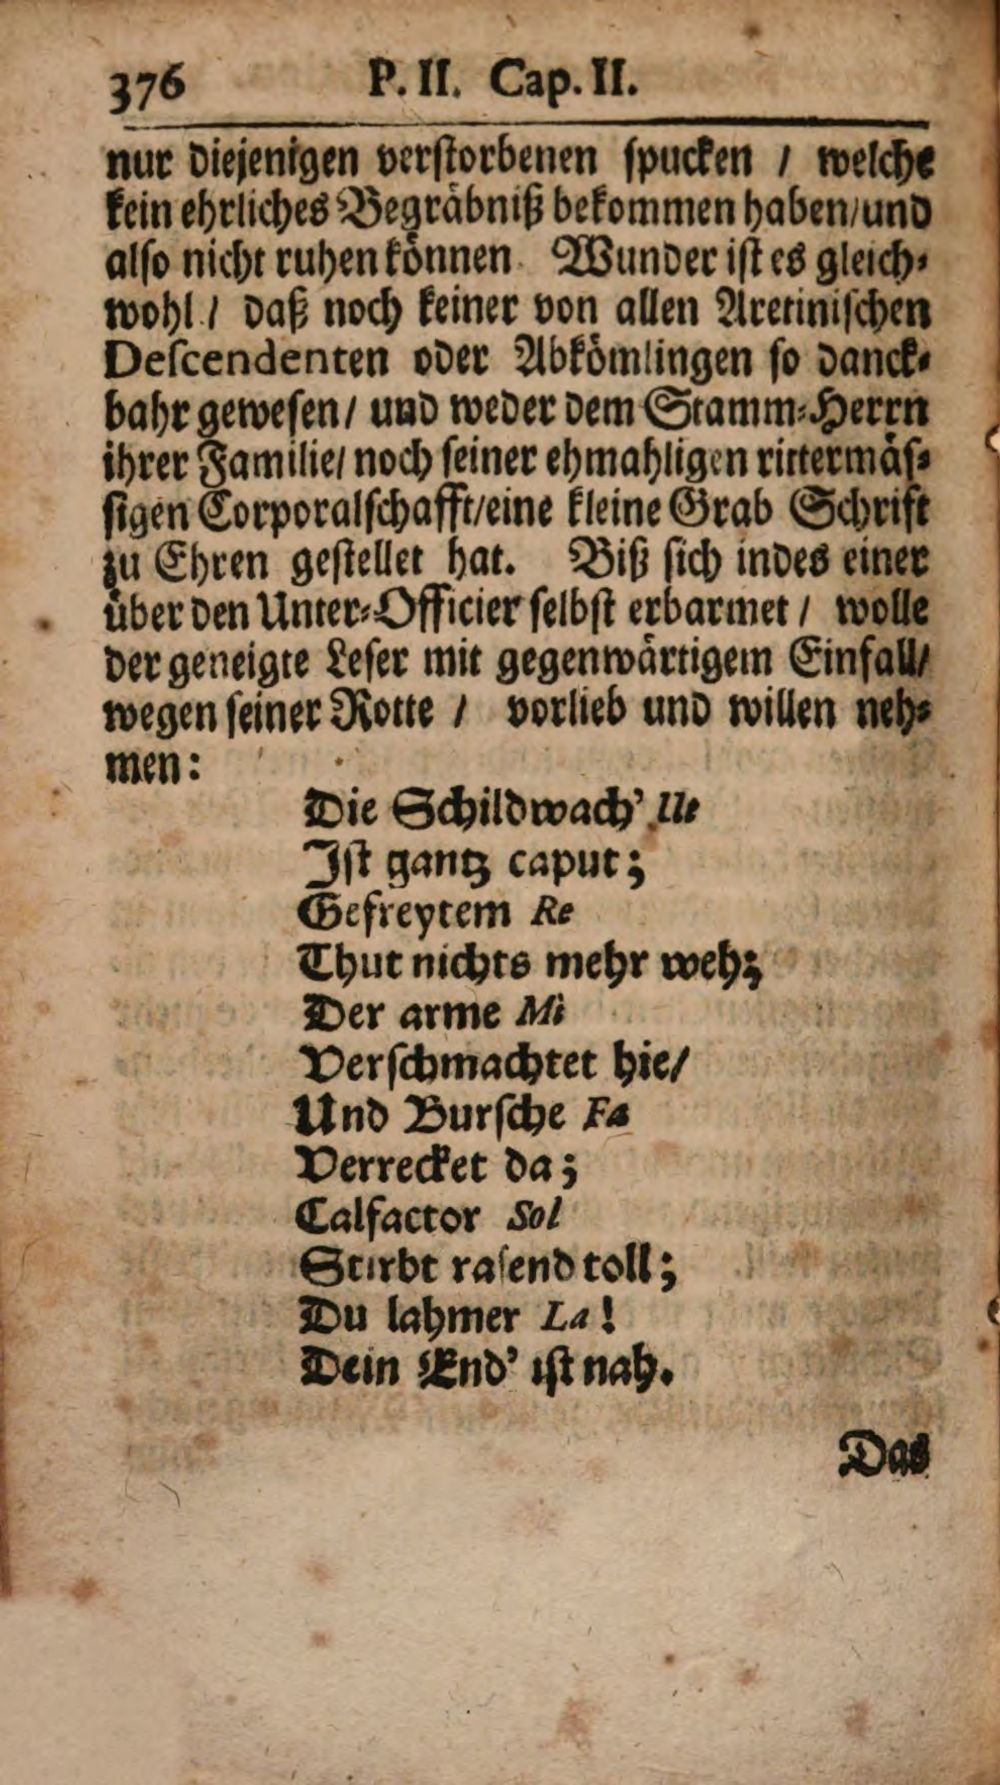 376 P. II. Cap. II.
nur diejenigen verstorbenen spucken / welche
kein ehrliches Begräbniß bekommen haben/und
also nicht ruhen können. Wunder ist es gleich-
wohl / daß noch keiner von allen Aretinischen
Descendenten oder Abkömlingen so danck-
bahr gewesen / und weder dem Stamm-Herrn
ihrer Familie/ noch seiner ehmahligen rittermäs-
sigen Corporalschafft/eine kleine Grab Schrift
zu Ehren gestellet hat. Biß sich indes einer
über den Unter-Officier selbst erbarmet / wolle
der geneigte Leser mit gegenwärtigem Einfall/
wegen seiner Rotte / vorlieb und willen neh-
men:
Die Schildwach' Ut
Ist gantz caput;
Gefreytem Re
Thut nichts mehr weh;
Der arme Mi
Verschmachtet hie/
Und Bursche Fa
Verrecket da;
Calfactor Sol
Stirbt rasend toll;
Du lahmer La!
Dein End' ist nah.
Das